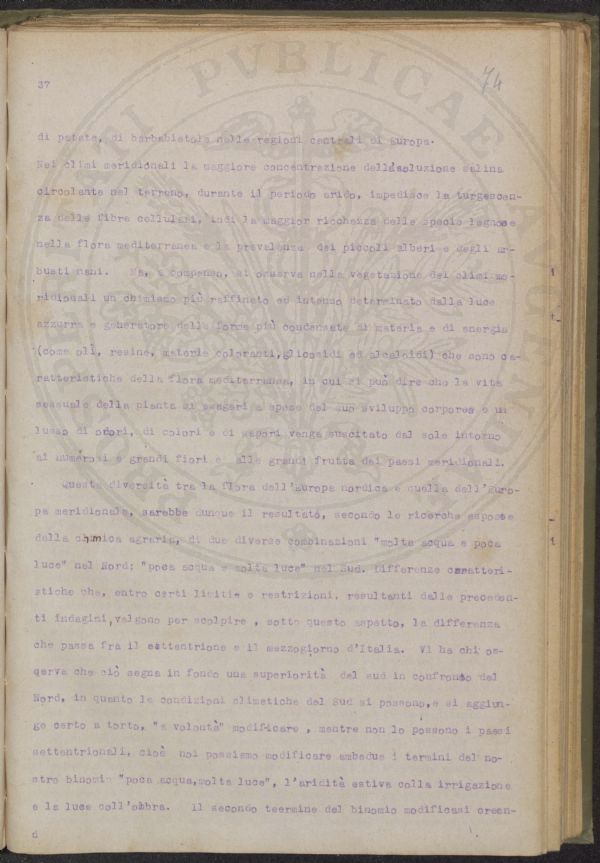 37
74
di patate, di barbabietole nelle regioni centrali di Europa.
Nei climi meridionali la maggiore concentrazione della soluzione salina
circolante nel terreno, durante il periodo arido, impedisce la turgescen-
za delle fibre cellulari, indi la maggior ricchezza delle specie legnose
nella flora mediterranea e la prevalenza dei piccoli alberi e degli ar-
busti nani. Ma, a compenso, si osserva nella vegetazione dei climi me-
ridionali un chimismo più raffinato ed intenso determinato dalla luce
azzurra e generatore delle forme più condensate di materia e di energia
(come olî, resine, materie coloranti, glicosidi ed alcaloidi) che sono ca-
ratteristiche della flora mediterranea, in cui si può dire che la vita
sessuale della pianta si esageri a spese del suo sviluppo corporeo e un
lusso di odori, di colori e di sapori venga suscitato dal sole intorno
ai numerosi e grandi fiori e alle grandi frutta dei paesi meridionali.
Questa diversità tra la flora dell'Europa nordica e quella dell'Euro-
pa meridionale, sarebbe dunque il resultato, secondo le ricerche esposte
dalla chimica agraria, di due diverse combinazioni "molta acqua e poca
luce" nel Nord; "poca acqua e molta luce" nel Sud. Differenze caratteri-
stiche che, entro certi limiti e restrizioni, resultanti dalle preceden-
ti indagini, valgono per scolpire, sotto questo aspetto, la differenza
che passa fra il settentrione e il mezzogiorno d'Italia. Vi ha chi os-
serva che ciò segna in fondo una superiorità del sud in confronto del
Nord, in quanto le condizioni climatiche del Sud si possono, e si aggiun-
ge certo a torto, "a volontà" modificare, mentre non lo possono i paesi
settentrionali, cioè noi possiamo modificare ambedue i termini del no-
stro binomio "poca acqua, molta luce", l'aridità estiva colla irrigazione
e la luce coll'ombra. Il secondo teermine del binomio modificasi creen-
d